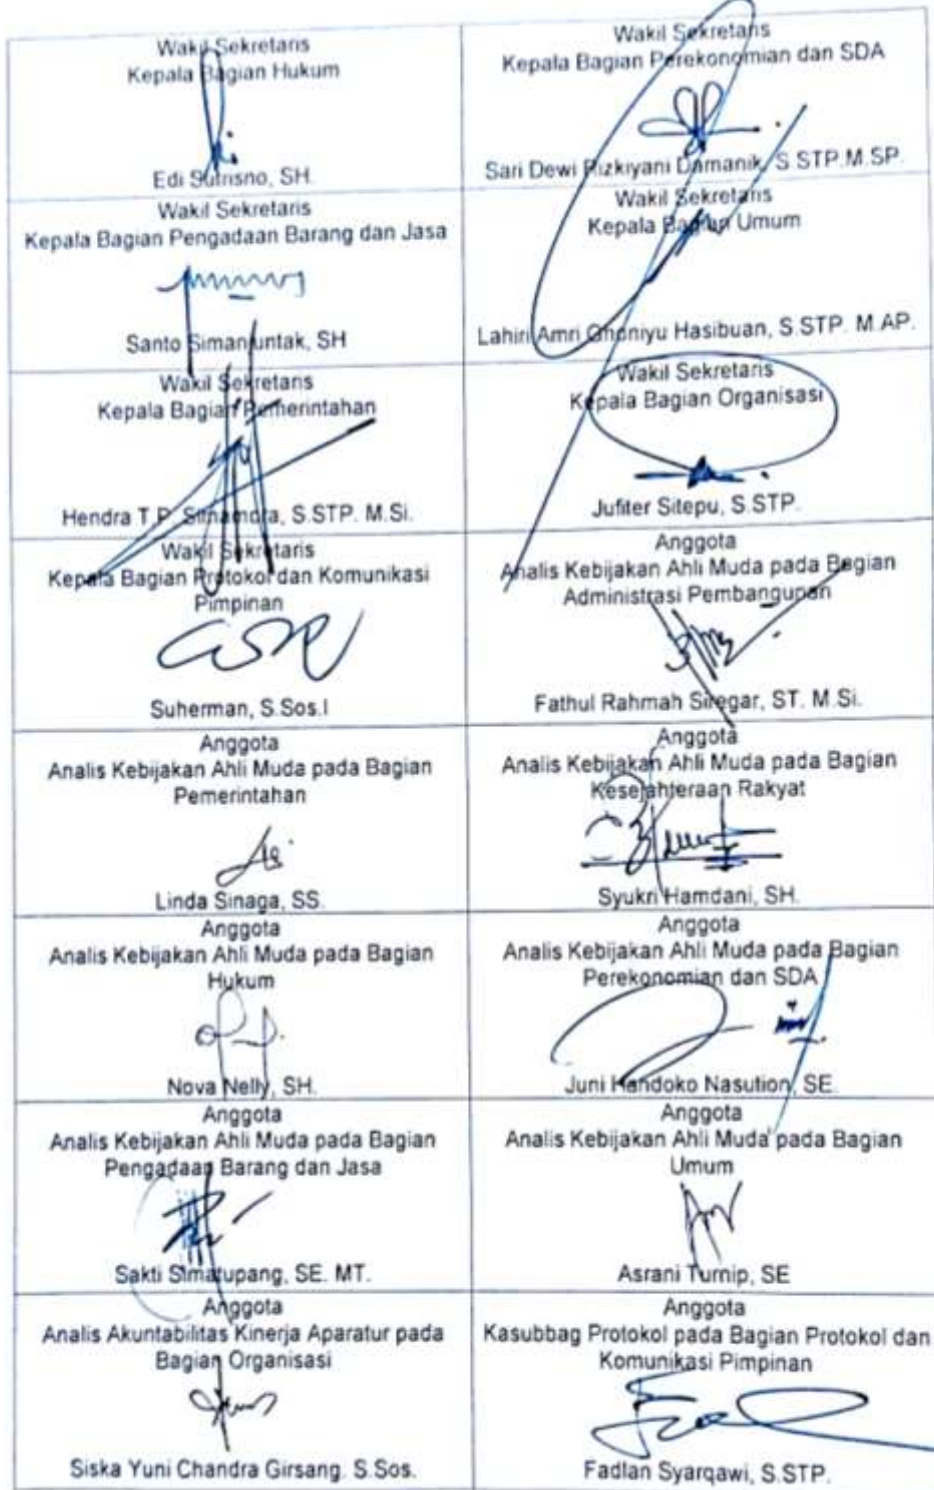 Wakil Sekretaris
Kepala Bagian Hukum
Edi Sutrisno, SH.
Wakil Sekretaris
Kepala Bagian Perekonomian dan SDA
Sari Dewi Rizkiyani Damanik, S.STP.M.SP.
Wakil Sekretaris
Kepala Bagian Pengadaan Barang dan Jasa
Santo Simanjuntak, SH
Wakil Sekretaris
Kepala Bagian Umum
Lahiri Amri Ghoniyu Hasibuan, S.STP. M.AP.
Wakil Sekretaris
Kepala Bagian Pemerintahan
Hendra T.P. Simamora, S.STP. M.Si.
Wakil Sekretaris
Kepala Bagian Organisasi
Jufiter Sitepu, S.STP.
Wakil Sekretaris
Kepala Bagian Protokol dan Komunikasi
Pimpinan
Suherman, S.Sos.I
Anggota
Analis Kebijakan Ahli Muda pada Bagian
Administrasi Pembangunan
Fathul Rahmah Siregar, ST. M.Si.
Anggota
Analis Kebijakan Ahli Muda pada Bagian
Pemerintahan
Linda Sinaga, SS.
Anggota
Analis Kebijakan Ahli Muda pada Bagian
Kesejahteraan Rakyat
Syukri Hamdani, SH.
Anggota
Analis Kebijakan Ahli Muda pada Bagian
Hukum
Nova Nelly, SH.
Anggota
Analis Kebijakan Ahli Muda pada Bagian
Perekonomian dan SDA
Juni Handoko Nasution, SE.
Anggota
Analis Kebijakan Ahli Muda pada Bagian
Pengadaan Barang dan Jasa
Sakti Simatupang, SE. MT.
Anggota
Analis Kebijakan Ahli Muda pada Bagian
Umum
Asrani Turnip, SE
Anggota
Analis Akuntabilitas Kinerja Aparatur pada
Bagian Organisasi
Siska Yuni Chandra Girsang. S.Sos.
Anggota
Kasubbag Protokol pada Bagian Protokol dan
Komunikasi Pimpinan
Fadlan Syarqawi, S.STP.